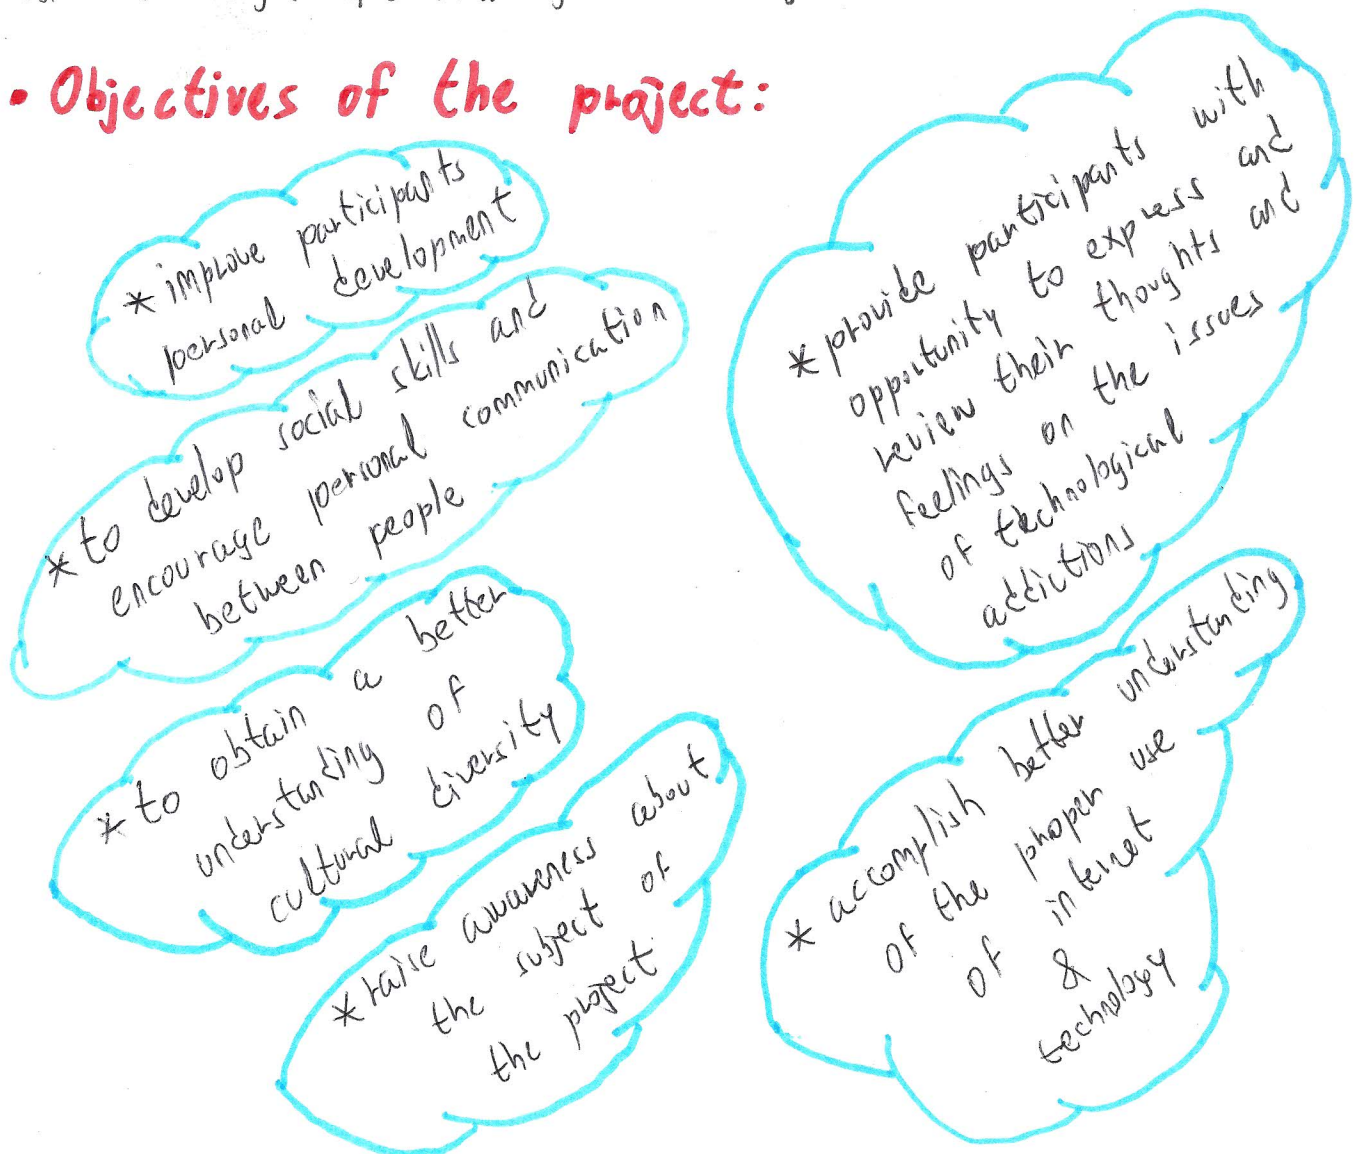 • Objectives of the project:
* improve participants
personal development
* to develop social skills and
encourage personal communication
between people
* to obtain a better
understanding of
cultural diversity
* raise awareness about
the subject of
the project
* provide participants with
opportunity to express and
review their thoughts and
feelings on the issues
of technological
addictions
* accomplish better understanding
of the proper use
of internet
&
technology